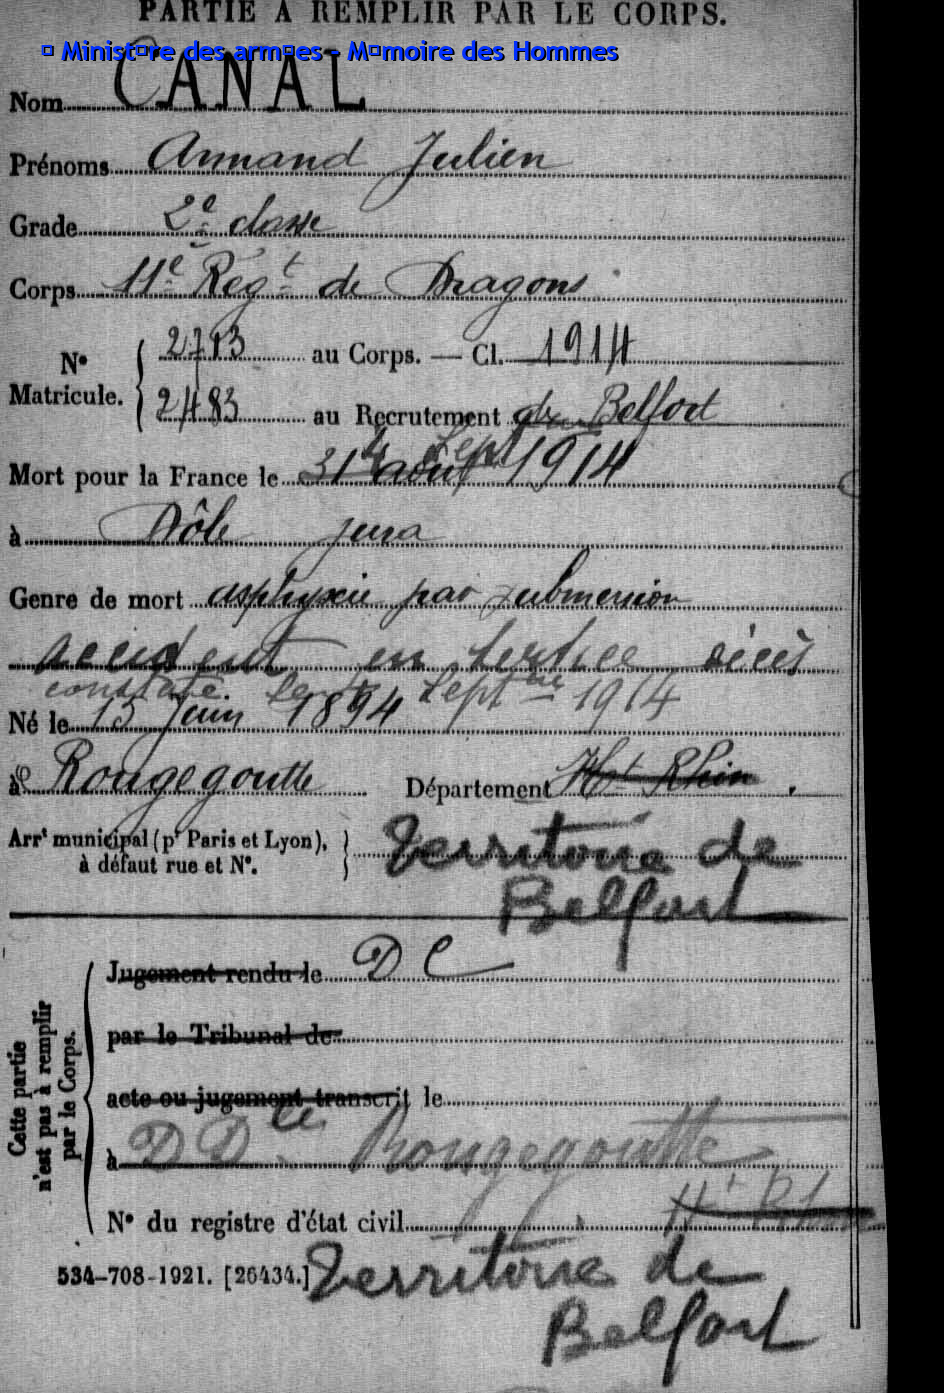 PARTIE À REMPLIR PAR LE CORPS.
Minist re des arm es - M moire des Hommes
Nom CANAL
Prénoms Armand Julien
Grade 2e classe
Corps 11e Régt de Dragons
No Matricule. 2713 au Corps. — Cl. 1914
2483 au Recrutement de Belfort
4 Sept
Mort pour la France le 31 août 1914
à Dôle Jura
Genre de mort asphyxie par submersion
accident en service décès
constaté le Septbre 1914
Né le 13 Juin 1894
à Rougegoutte Département Ht Rhin.
Arrt municipal (pr Paris et Lyon),
à défaut rue et No. Territoire de
Belfort
Cette partie
n'est pas à remplir
par le Corps.
Jugement rendu le D C
par le Tribunal de
acte ou jugement transcrit le
à DD ce Rougegoutte
Ht Rhin
No du registre d'état civil
534-708-1921. [26434.] Territoire de
Belfort